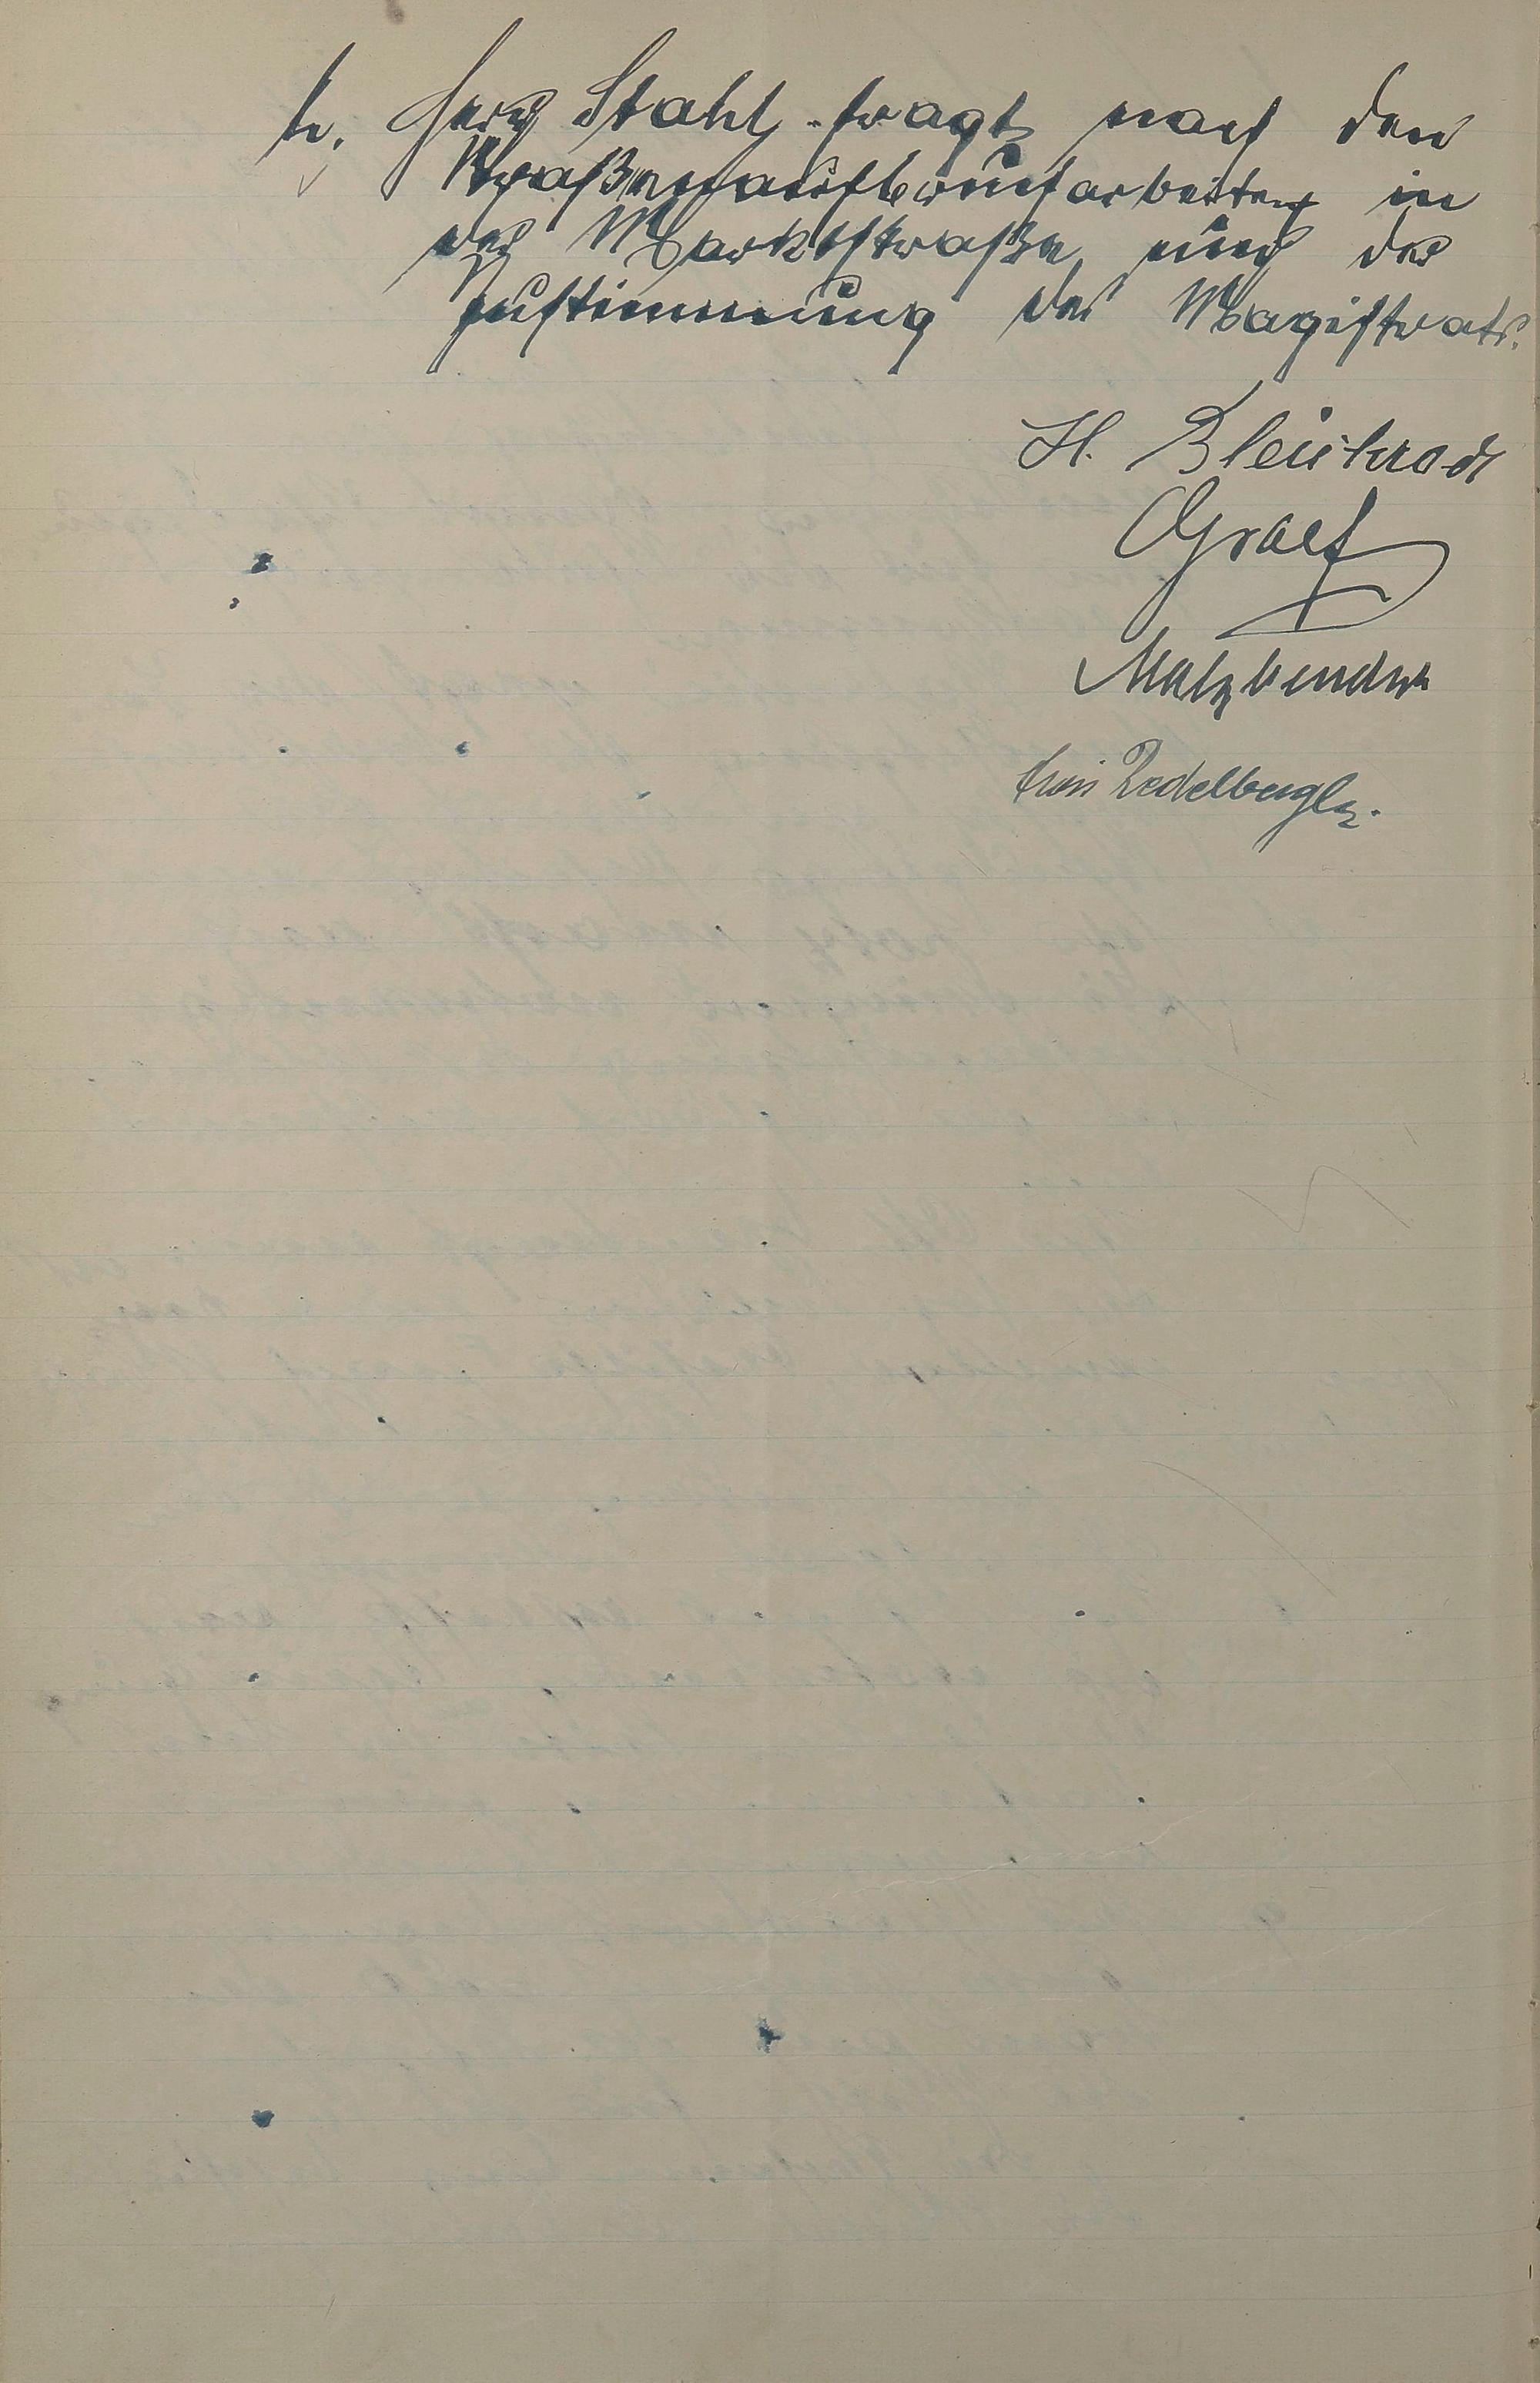 h. Herr Stahl fragt nach den
Straßenaufbrucharbeiten in
der Marktstraße und der
Zustimmung des Magistrats.
H. Bleikrodt
Graef
Malzbender